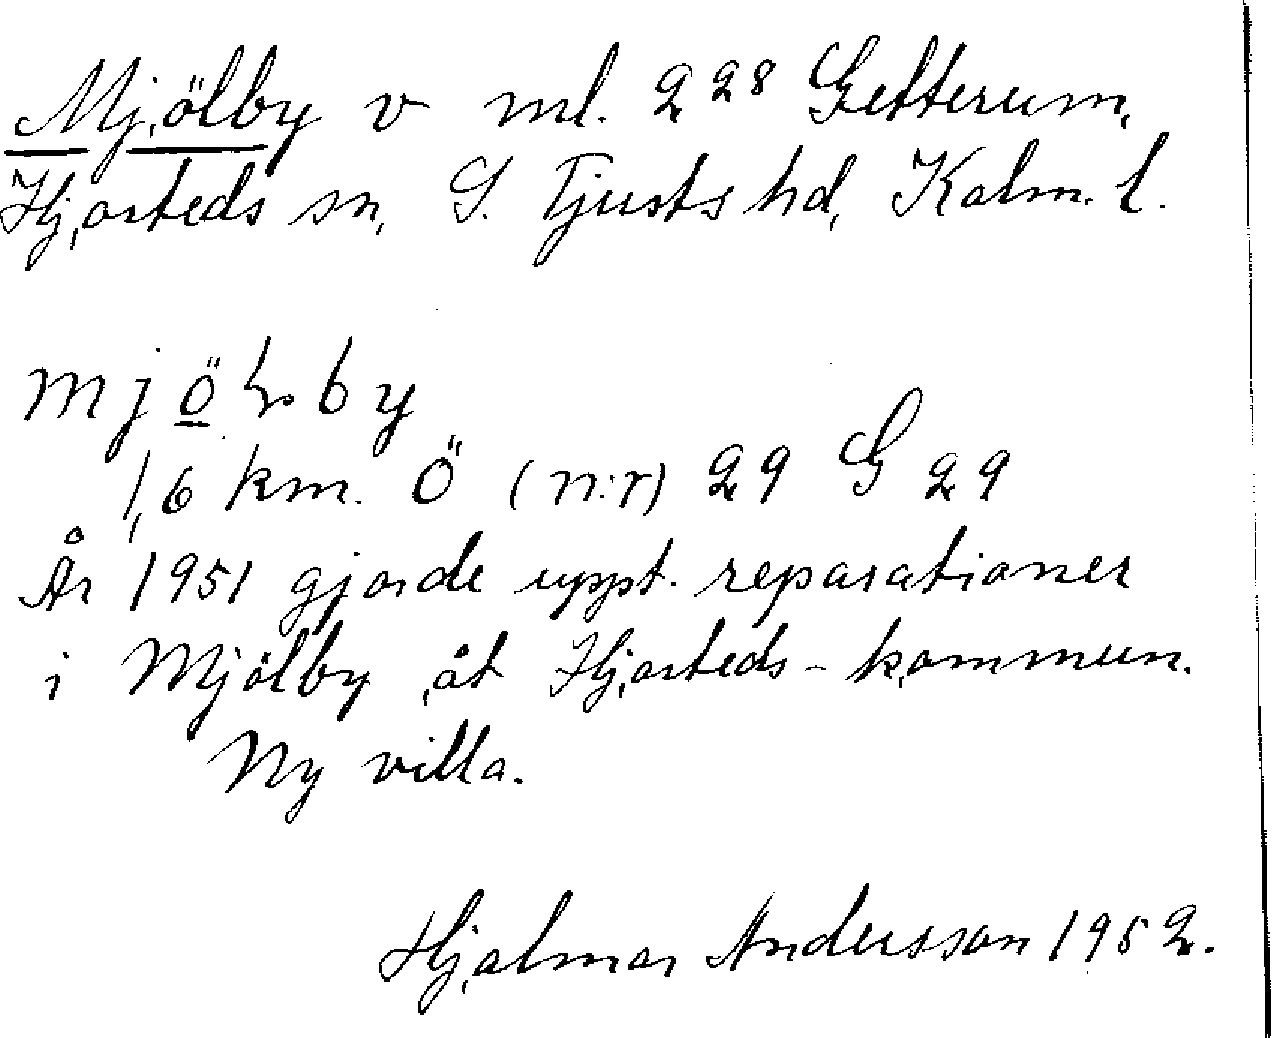 Mjölby v ml. 2²⁸ Getterum,
Hjorteds sn, S. Tjusts hd, Kalm. l.
mjölby
1,6 km. Ö (n:r) 29 G 29
År 1951 gjorde uppt. reparationer
i Mjölby åt Hjorteds-kommun.
Ny villa.
Hjalmar Andersson 1952.